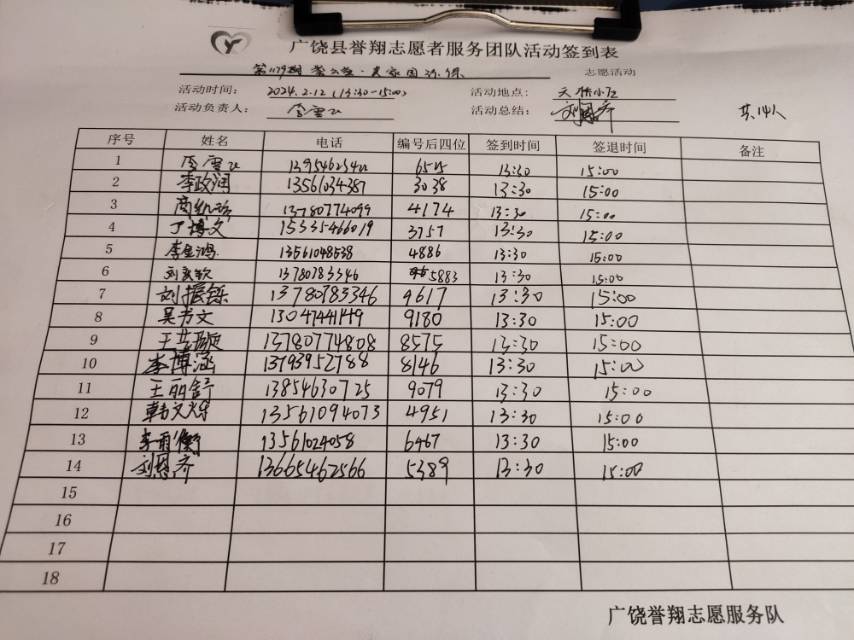 广饶县誉翔志愿者服务团队活动签到表
志愿活动
活动时间: 2024.2.12 (13:30-15:00) 活动地点: 天桥小区
活动负责人: 活动总结: 刘恩齐 共14人
序号 姓名 电话 编号后四位 签到时间 签退时间 备注
1 13:30 15:00
2 李政润 13561034387 3038 13:30 15:00
3 13780774099 4174 13:30 15:00
4 丁博文 15335466019 3757 13:30 15:00
5 13561048538 4886 13:30 15:00
6 13780783346 5883 13:30 15:00
7 刘振铄 13780783346 9617 13:30 15:00
8 吴书文 13047441149 9180 13:30 15:00
9 13780774808 8575 13:30 15:00
10 李博涵 13793952788 8146 13:30 15:00
11 王丽舒 13854630725 9079 13:30 15:00
12 13561094073 4951 13:30 15:00
13 李雨衡 13561024058 6467 13:30 15:00
14 刘恩齐 13665462566 5389 13:30 15:00
15
16
17
18
广饶誉翔志愿服务队